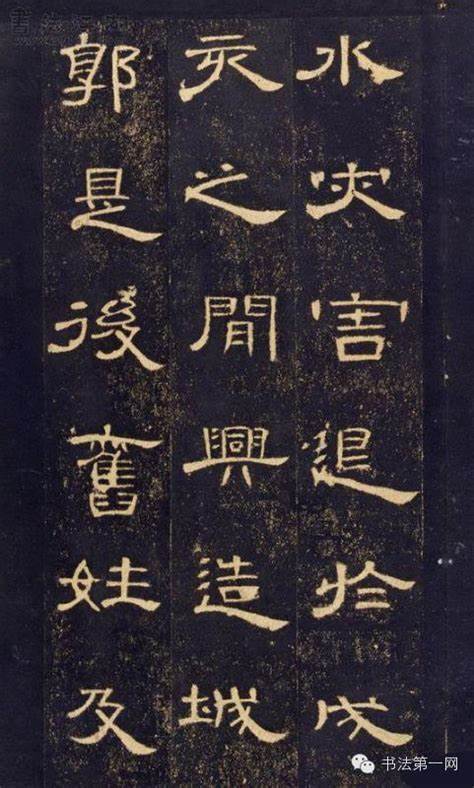 水灾害退於戌
亥之間興造城
郭是後舊姓及
书法第一网